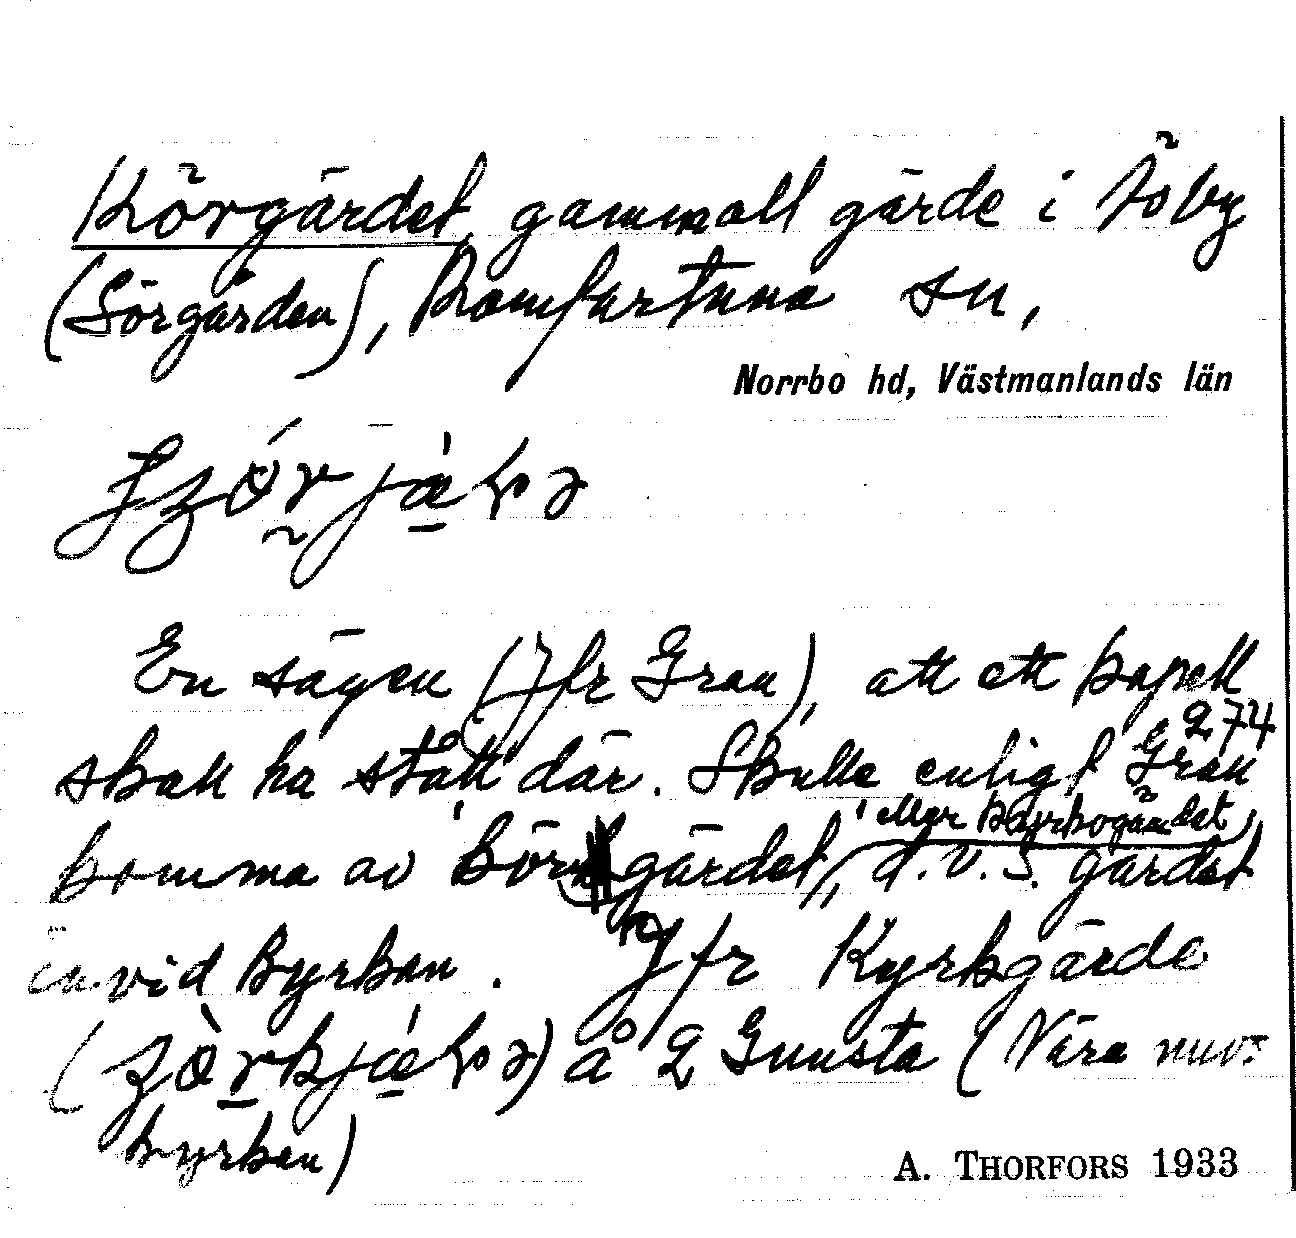 Körgärdet, gammalt gärde i Töby
(Sörgården), Romfartuna sn,
Norrbo hd, Västmanlands län
En sägen (Jfr Gran), att ett kapell
skall ha stått där. Skulle enligt Gran 274
eller Kyrkogärdet,
komma av Körkgärdet, d.v.s. gärdet
invid kyrkan. Jfr Kyrkgärde
å 2 Gunsta (Nära nuv.
kyrkan)
A. THORFORS 1933